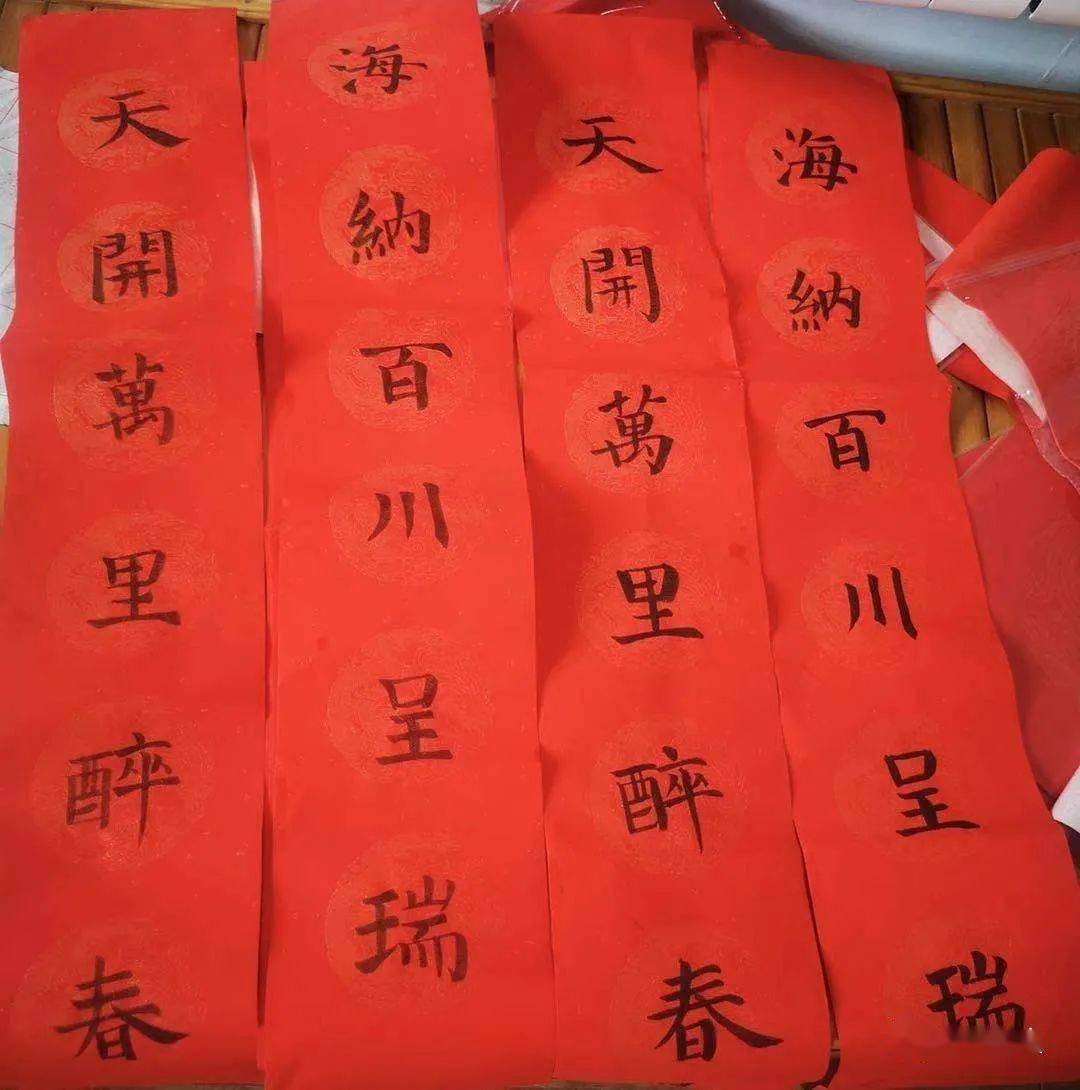 海納百川呈瑞
天開萬里醉春
海納百川呈瑞
天開萬里醉春